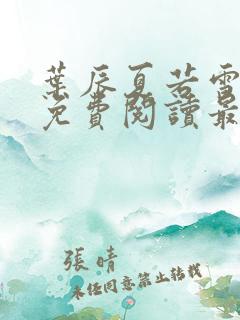 葉辰夏若雪
免費閱讀最
張晴
未经同意禁止转载